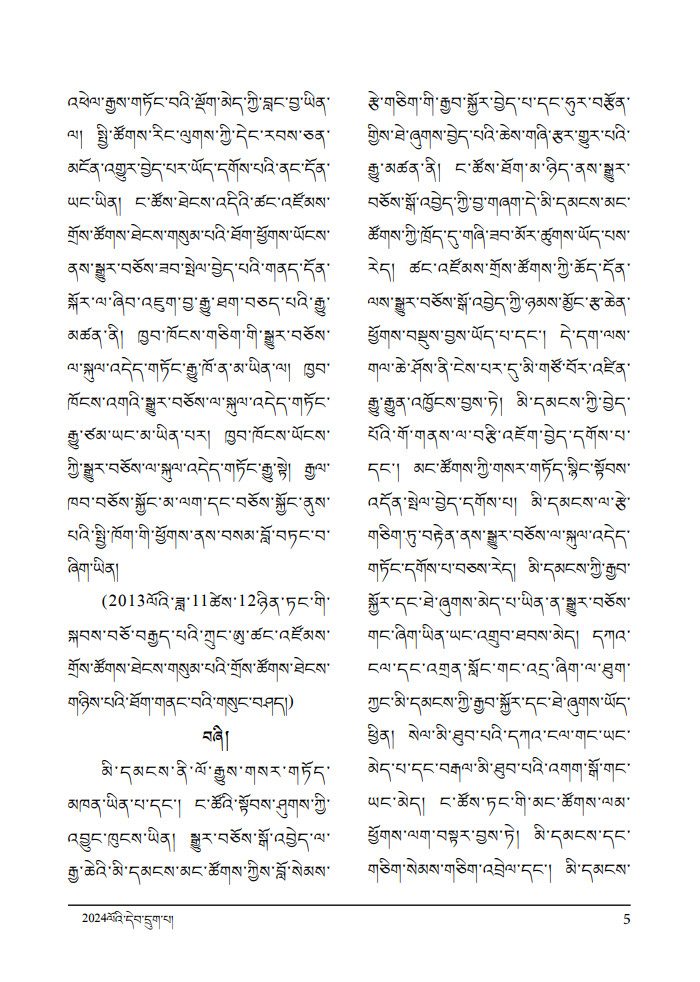 འཕེལ་རྒྱས་གཏོང་བའི་ལྡོག་མེད་ཀྱི་བླང་བྱ་ཡིན་
ལ། སྤྱི་ཚོགས་རིང་ལུགས་ཀྱི་དེང་རབས་ཅན་
མངོན་འགྱུར་བྱེད་པར་ཡོད་དགོས་པའི་ནང་དོན་
ཡང་ཡིན། ང་ཚོས་ཐེངས་འདིའི་ཚང་འཛོམས་
གྲོས་ཚོགས་ཐེངས་གསུམ་པའི་ཐོག་ཕྱོགས་ཡོངས་
ནས་སྒྱུར་བཅོས་ཟབ་སྤེལ་བྱེད་པའི་གནད་དོན་
སྐོར་ལ་ཞིབ་འཇུག་བྱ་རྒྱུ་ཐག་བཅད་པའི་རྒྱུ་
མཚན་ནི། ཁྱབ་ཁོངས་གཅིག་གི་སྒྱུར་བཅོས་
ལ་སྐུལ་འདེད་གཏོང་རྒྱུ་ཁོ་ན་མ་ཡིན་ལ། ཁྱབ་
ཁོངས་འགའི་སྒྱུར་བཅོས་ལ་སྐུལ་འདེད་གཏོང་
རྒྱུ་ཙམ་ཡང་མ་ཡིན་པར། ཁྱབ་ཁོངས་ཡོངས་
ཀྱི་སྒྱུར་བཅོས་ལ་སྐུལ་འདེད་གཏོང་རྒྱུ་སྟེ། རྒྱལ་
ཁབ་བཅོས་སྐྱོང་མ་ལག་དང་བཅོས་སྐྱོང་ནུས་
པའི་སྤྱི་ཁོག་གི་ཕྱོགས་ནས་བསམ་བློ་བཏང་བ་
ཞིག་ཡིན།
(2013ལོའི་ཟླ་11ཚེས་12ཉིན་ཏང་གི་
སྐབས་བཅོ་བརྒྱད་པའི་ཀྲུང་ཨུ་ཚང་འཛོམས་
གྲོས་ཚོགས་ཐེངས་གསུམ་པའི་གྲོས་ཚོགས་ཐེངས་
གཉིས་པའི་ཐོག་གནང་བའི་གསུང་བཤད།)
བཞི།
མི་དམངས་ནི་ལོ་རྒྱུས་གསར་གཏོད་
མཁན་ཡིན་པ་དང་། ང་ཚོའི་སྟོབས་ཤུགས་ཀྱི་
འབྱུང་ཁུངས་ཡིན། སྒྱུར་བཅོས་སྒོ་འབྱེད་ལ་
རྒྱ་ཆེའི་མི་དམངས་མང་ཚོགས་ཀྱིས་བློ་སེམས་
རྩེ་གཅིག་གི་རྒྱབ་སྐྱོར་བྱེད་པ་དང་ཧུར་བརྩོན་
གྱིས་ཐེ་ཞུགས་བྱེད་པའི་ཆེས་གཞི་རྩར་གྱུར་པའི་
རྒྱུ་མཚན་ནི། ང་ཚོས་ཐོག་མ་ཉིད་ནས་སྒྱུར་
བཅོས་སྒོ་འབྱེད་ཀྱི་བྱ་གཞག་དེ་མི་དམངས་མང་
ཚོགས་ཀྱི་ཁྲོད་དུ་གཞི་ཟབ་མོར་ཚུགས་ཡོད་པས་
རེད། ཚང་འཛོམས་གྲོས་ཚོགས་ཀྱི་ཆོད་དོན་
ལས་སྒྱུར་བཅོས་སྒོ་འབྱེད་ཀྱི་ཉམས་མྱོང་རྩ་ཆེན་
ཕྱོགས་བསྡུས་བྱས་ཡོད་པ་དང་། དེ་དག་ལས་
གལ་ཆེ་ཤོས་ནི་ངེས་པར་དུ་མི་གཙོ་བོར་འཛིན་
རྒྱུ་རྒྱུན་འཁྱོངས་བྱས་ཏེ། མི་དམངས་ཀྱི་བྱེད་
པོའི་གོ་གནས་ལ་བརྩི་འཇོག་བྱེད་དགོས་པ་
དང་། མང་ཚོགས་ཀྱི་གསར་གཏོད་སྙིང་སྟོབས་
འདོན་སྤེལ་བྱེད་དགོས་པ། མི་དམངས་ལ་རྩེ་
གཅིག་ཏུ་བརྟེན་ནས་སྒྱུར་བཅོས་ལ་སྐུལ་འདེད་
གཏོང་དགོས་པ་བཅས་རེད། མི་དམངས་ཀྱི་རྒྱབ་
སྐྱོར་དང་ཐེ་ཞུགས་མེད་པ་ཡིན་ན་སྒྱུར་བཅོས་
གང་ཞིག་ཡིན་ཡང་འགྲུབ་ཐབས་མེད། དཀའ་
ངལ་དང་འགྲན་སློང་གང་འདྲ་ཞིག་ལ་ཐུག་
ཀྱང་མི་དམངས་ཀྱི་རྒྱབ་སྐྱོར་དང་ཐེ་ཞུགས་ཡོད་
ཕྱིན། སེལ་མི་ཐུབ་པའི་དཀའ་ངལ་གང་ཡང་
མེད་པ་དང་བརྒལ་མི་ཐུབ་པའི་འགག་སྒོ་གང་
ཡང་མེད། ང་ཚོས་ཏང་གི་མང་ཚོགས་ལམ་
ཕྱོགས་ལག་བསྟར་བྱས་ཏེ། མི་དམངས་དང་
གཅིག་སེམས་གཅིག་འབྲེལ་དང་། མི་དམངས་
2024ལོའི་དེབ་དྲུག་པ།
5